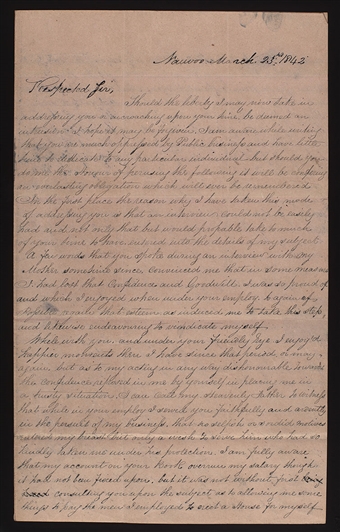 Nauvoo March 25th, 1842
Respected Sir,
Should the liberty I may now take in
addressing you or encroaching upon your time, be deemed an
intrusion I hope it may be forgiven. I am aware while writing
that you are much oppressed by Public business and have little
time to dedicate to any particular individual but should you
do me the favour of perusing the following it will be conferring
an everlasting obligation which will ever be remembered
In the first place the reason why I have taken this mode
of addressing you is that an interview could not be easily
had and not only that but would probable take to much
of your time to have entered into the details of my subject.
A few words that you spoke during an interview with my
Mother sometime since convinced me that in some measure
I had lost that Confidence and Goodwill I was so proud of
and which I enjoyed when under your employ. To again
again that esteem as induced me to take this step,
and likewise endeavouring to vindicate myself.
While with you, and under your friendly Eye I enjoyed
happier moments then I have since that period or may
again but as to my acting in any way dishonourable towards
the confidence reposed in me by yourself in placing me in
a trusty situation, I now call my Heavenly Father to witness
that while in your employ I served you faithfully and
in the of my business, that no selfish or sordid motives
entered my breast but only a wish to serve him who had so
kindly taken me under his protection. I am fully aware
that my account on your Books overrun my salary though
it had not been fixed upon, but it was not without first
consulting you upon the subject as to allowing me some
things to pay the men I employed to erect a House for myself